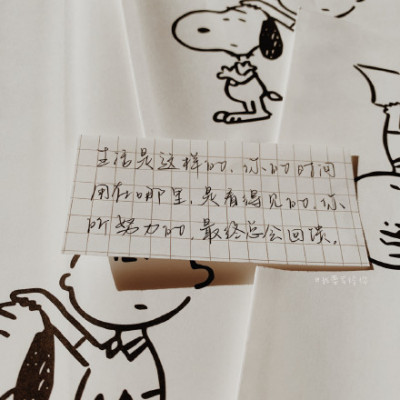 生活是这样的，你的时间
用在哪里，是看得见的，你
所努力的，最终总会回馈。